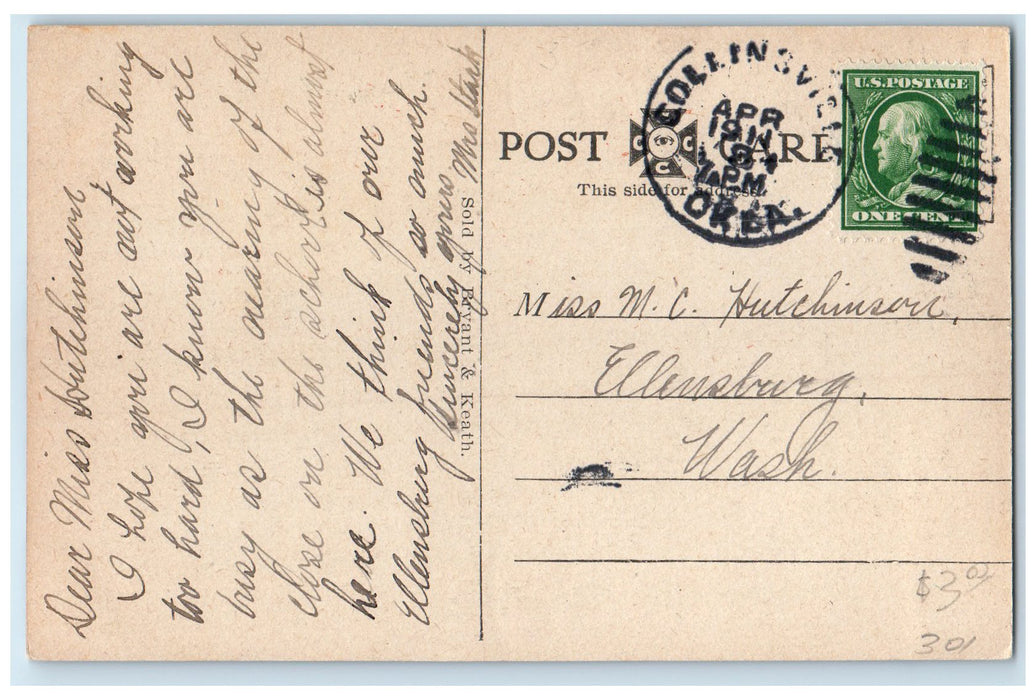 Dear Miss Hutchinson
I hope you are not working
too hard, I know you are
busy as the nearing of the
close on the school is almost
here. We think of our
Ellensburg friends so much.
Sincerely yours
Sold by Bryant & Keath.
POST CARD
C C C
This side for address.
COLLINSVILLE
APR
1911
PM
OKLA.
U.S. POSTAGE
ONE CENT
Miss M. C. Hutchinson,
Ellensburg,
Wash.
$3.00
301